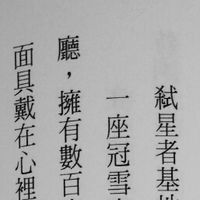 弑星者基地
一座冠雪
廳，擁有數百
面具戴在心裡